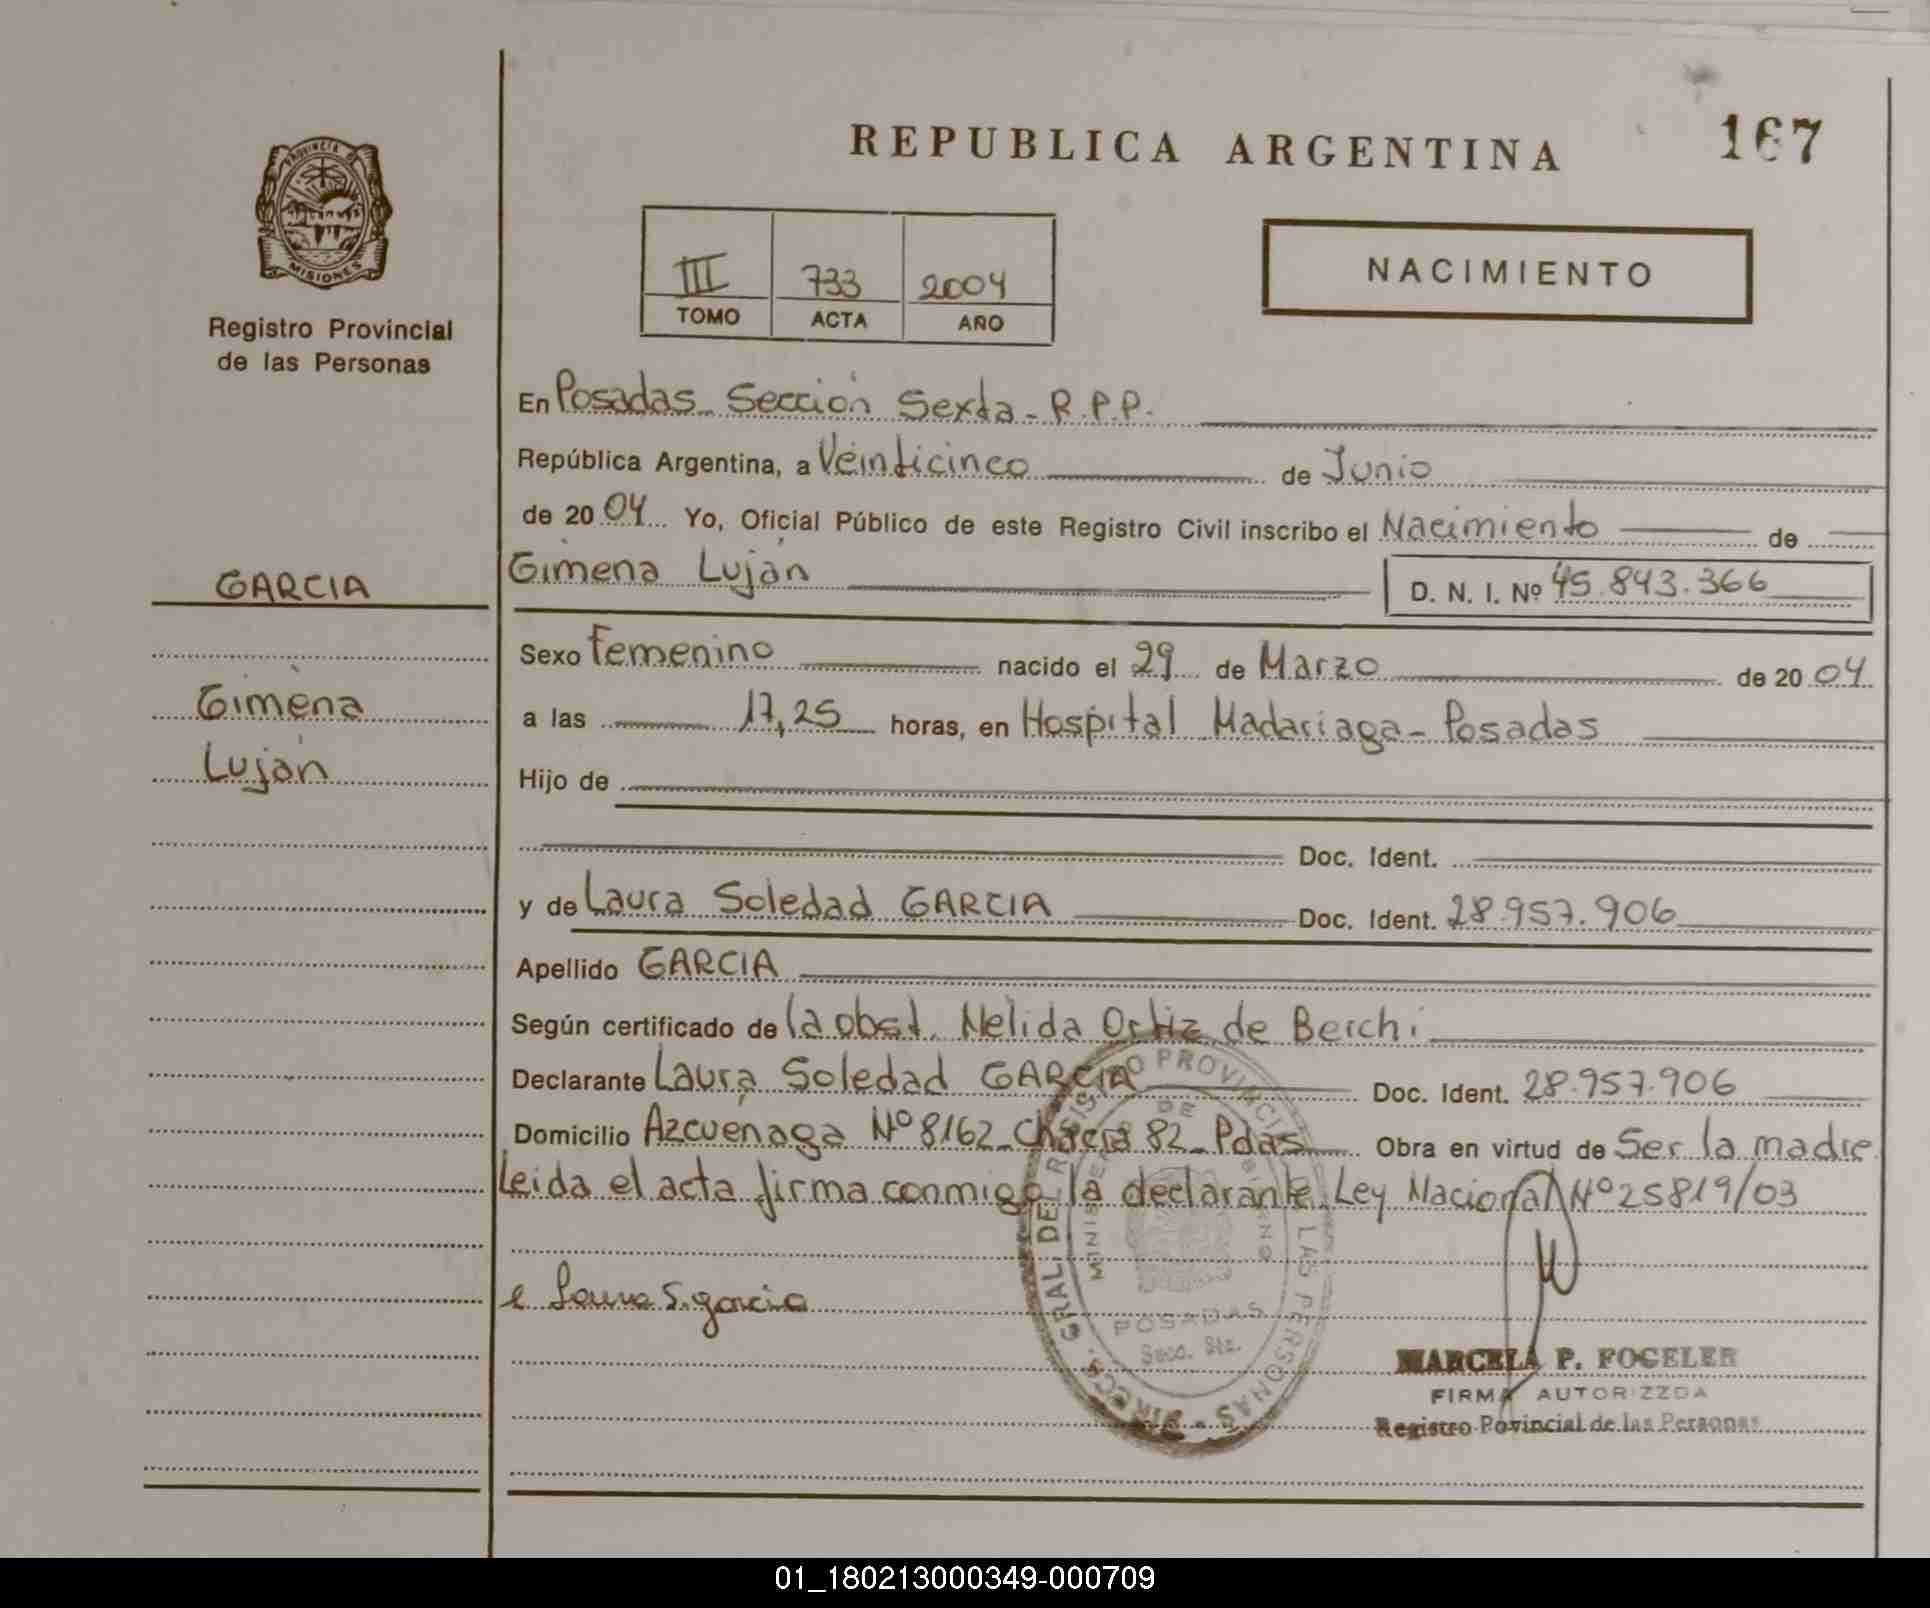 REPUBLICA ARGENTINA
167
PROVINCIA DE MISIONES
Registro Provincial
de las Personas
III 733 2004
TOMO ACTA AÑO
NACIMIENTO
En Posadas Sección Sexta - R.P.P.
República Argentina, a Veinticinco de Junio
de 2004 Yo, Oficial Público de este Registro Civil inscribo el Nacimiento de
GARCIA
Gimena Luján D. N. I. Nº 45.843.366
Sexo Femenino nacido el 29 de Marzo de 2004
Gimena
a las 17,25 horas, en Hospital Madariaga - Posadas
Luján
Hijo de
Doc. Ident.
y de Laura Soledad GARCIA Doc. Ident. 28.957.906
Apellido GARCIA
Según certificado de la obst. Nelida Ortiz de Berchi
Declarante Laura Soledad GARCIA Doc. Ident. 28.957.906
Domicilio Azcuénaga Nº 8162 - Chacra 82 - Pdas Obra en virtud de Ser la madre
Leida el acta firma conmigo la declarante. Ley Nacional Nº 25819/03
Laura S. garcia
POSADAS
Secc. 6ta.
MARCELA P. FOGELER
FIRMA AUTORIZZDA
Registro Povincial de las Personas
01_180213000349-000709